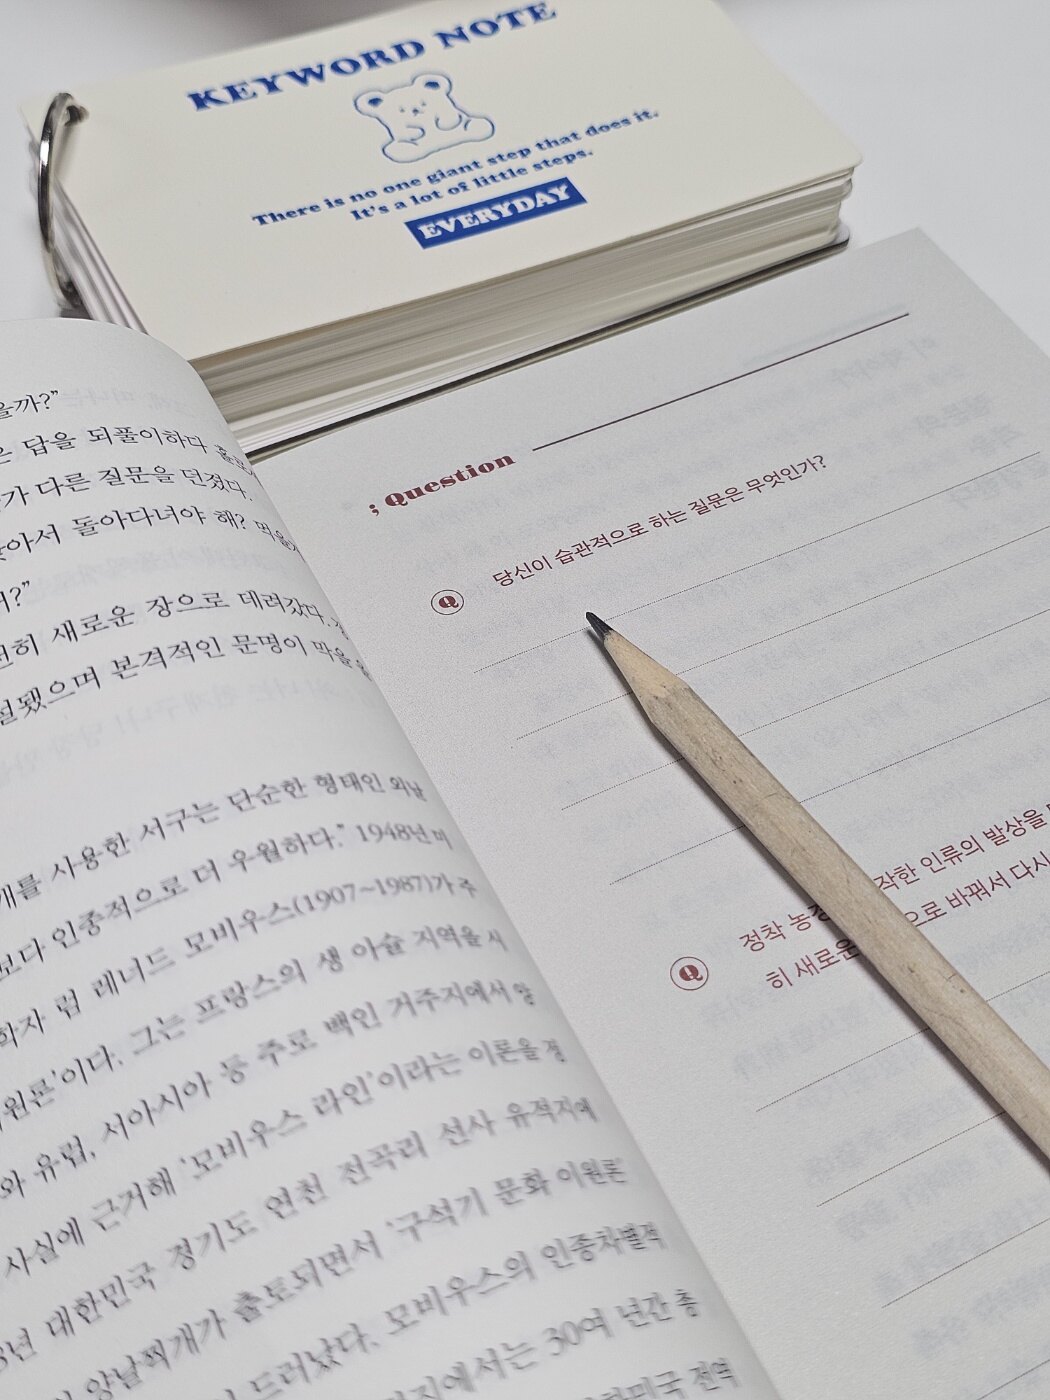 KEYWORD NOTE
There is no one giant step that does it.
It's a lot of little steps.
EVERYDAY
을까?"
은 답을 되풀이하다
가 다른 질문을 던졌다.
찾아서 돌아다녀야 해? 먹을
"
새로운 장으로 데려갔다.
됐으며 본격적인 문명이 막을
개를 사용한 서구는 단순한 형태인 외날
보다 인종적으로 더 우월하다." 1948년 미
학자 럼 레너드 모비우스(1907~1987)가 주
이원론'이다. 그는 프랑스의 생 아슐 지역을 시
와 유럽, 서아시아 등 주로 백인 거주지에서 양
사실에 근거해 '모비우스 라인'이라는 이론을 정
년 대한민국 경기도 연천 전곡리 선사 유적지에
양날찍개가 출토되면서 '구석기 문화 이원론'
드러났다. 모비우스의 인종차별적
지에서는 30여 년간 총
대한민국 전역
; Question
Q 당신이 습관적으로 하는 질문은 무엇인가?
Q 정착 농경 작한 인류의 발상을
히 새로운 으로 바꿔서 다시